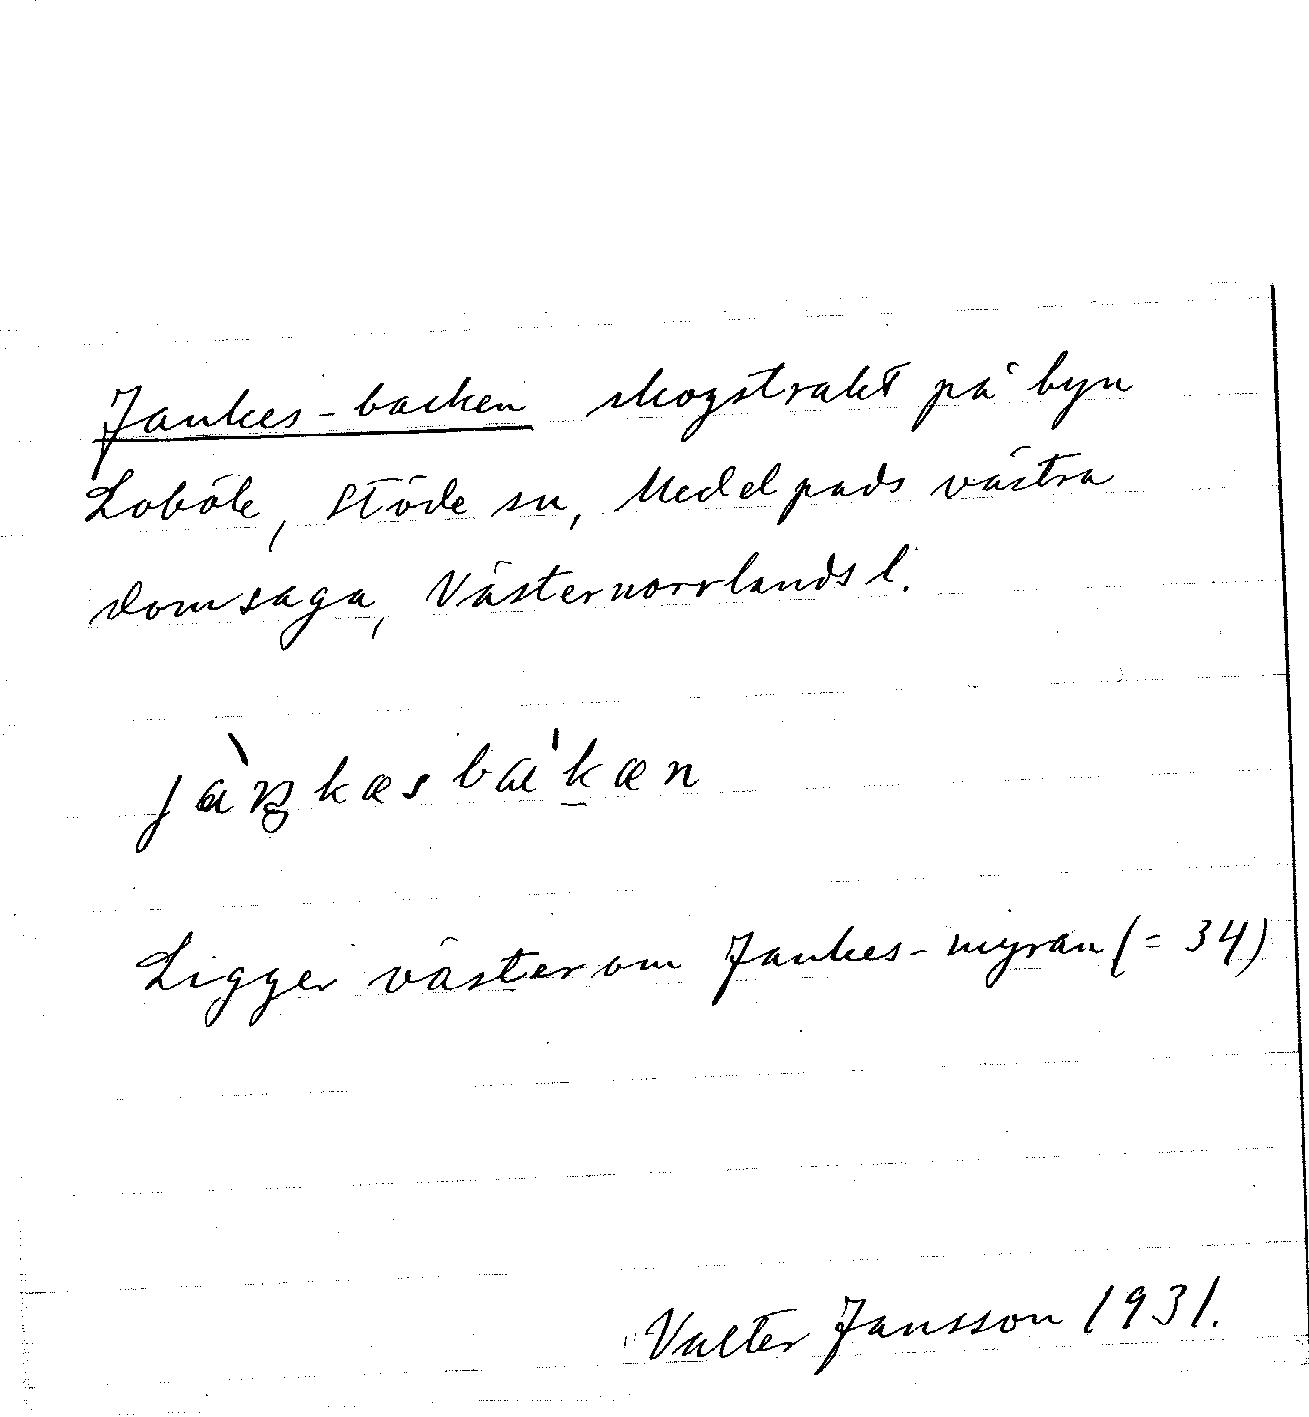 Jankes-backen skogstrakt på byn
Loböle, Stöde sn, Medelpads västra
domsaga, Västernorrlands l.
jàŋkæsbækæn
Ligger väster om Jankes-myran (= 34)
Valter Jansson 1931.